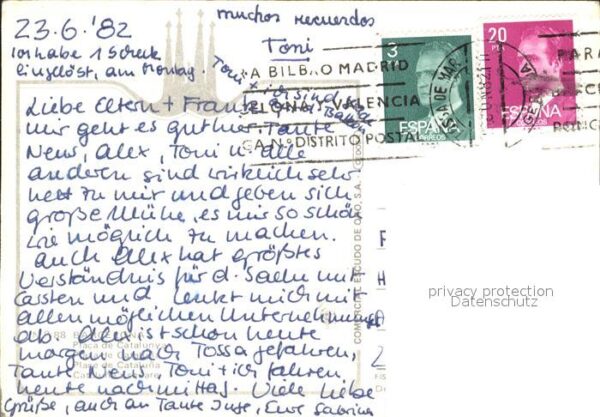 23.6.'82
muchos recuerdos
Toni
ich habe 1 Scheck
eingelöst, am Montag.
Toni
+ ich sind
Liebe Eltern + Frank
mir geht es gut hier. Tante
Neus, Alex, Toni u. alle
anderen sind wirklich sehr
nett zu mir und geben sich
große Mühe, es mir so schön
wie möglich zu machen.
Auch Alex hat größtes
Verständnis für d. Sache mit
Carsten und lenkt mich mit
allen möglichen Unternehmungen
ab. Alex ist schon heute
morgen nach Tossa gefahren,
Tante Neus, Toni + ich fahren
heute nachmittag. Viele liebe
Grüße, auch an Tante Inge, Eure Sabrina
3
ESPAÑA
CORREOS
20
PTA
ESPAÑA
CORREOS
A BILBAO MADRID
VALENCIA
DISTRITO POSTAL
PARA
COMERCIAL ESCUDO DE ORO, S.A.
88 BARCELONA
Plaza de Cataluña
privacy protection
Datenschutz